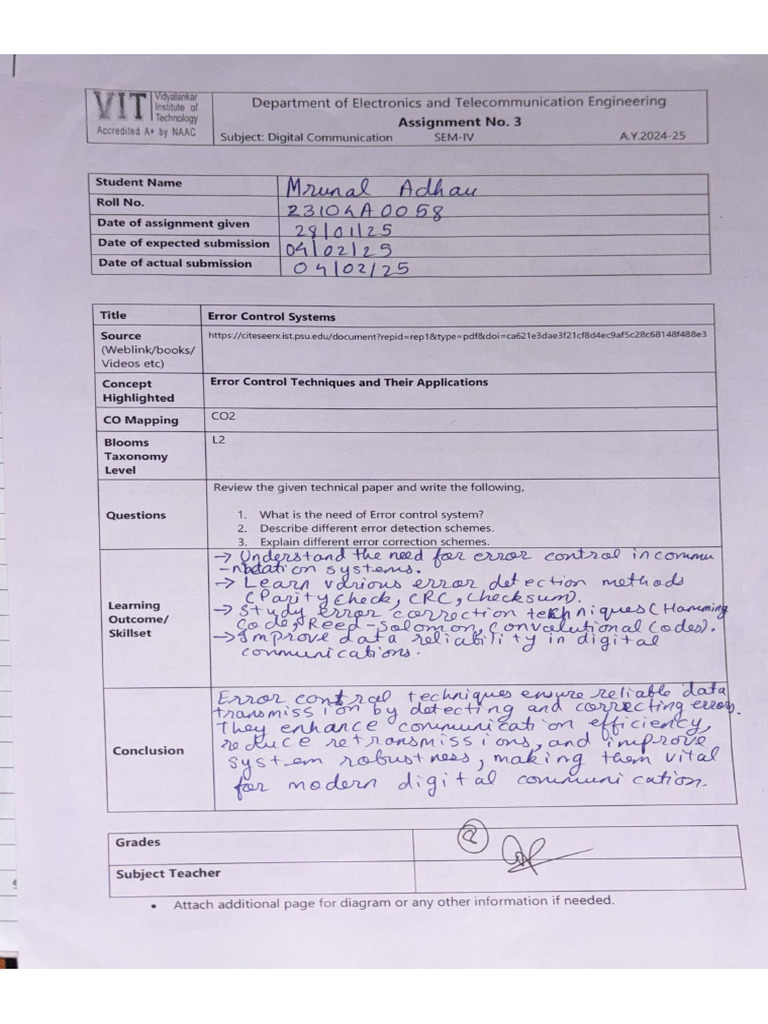 VIT
Vidyalankar
Institute of
Technology
Accredited A+ by NAAC
Department of Electronics and Telecommunication Engineering
Assignment No. 3
Subject: Digital Communication SEM-IV A.Y.2024-25
Student Name Mrunal Adhau
Roll No. 23104A0058
Date of assignment given 28/01/25
Date of expected submission 04/02/25
Date of actual submission 04/02/25
Title Error Control Systems
Source https://citeseerx.ist.psu.edu/document?repid=rep1&type=pdf&doi=ca621e3dae3f21cf8d4ec9af5c28c68148f488e3
(Weblink/books/
Videos etc)
Concept Error Control Techniques and Their Applications
Highlighted
CO Mapping CO2
Blooms L2
Taxonomy
Level
Questions
Review the given technical paper and write the following,
1. What is the need of Error control system?
2. Describe different error detection schemes.
3. Explain different error correction schemes.
Learning
Outcome/
Skillset
→ Understand the need for error control in commu
-nication systems.
→ Learn various error detection methods
(Parity check, CRC, checksum).
→ Study error correction techniques (Hamming
Code, Reed-Solomon, Convolutional Codes).
→ Improve data reliability in digital
communications.
Conclusion
Error control techniques ensure reliable data
transmission by detecting and correcting errors.
They enhance communication efficiency,
reduce retransmissions, and improve
system robustness, making them vital
for modern digital communication.
Grades
Subject Teacher
• Attach additional page for diagram or any other information if needed.